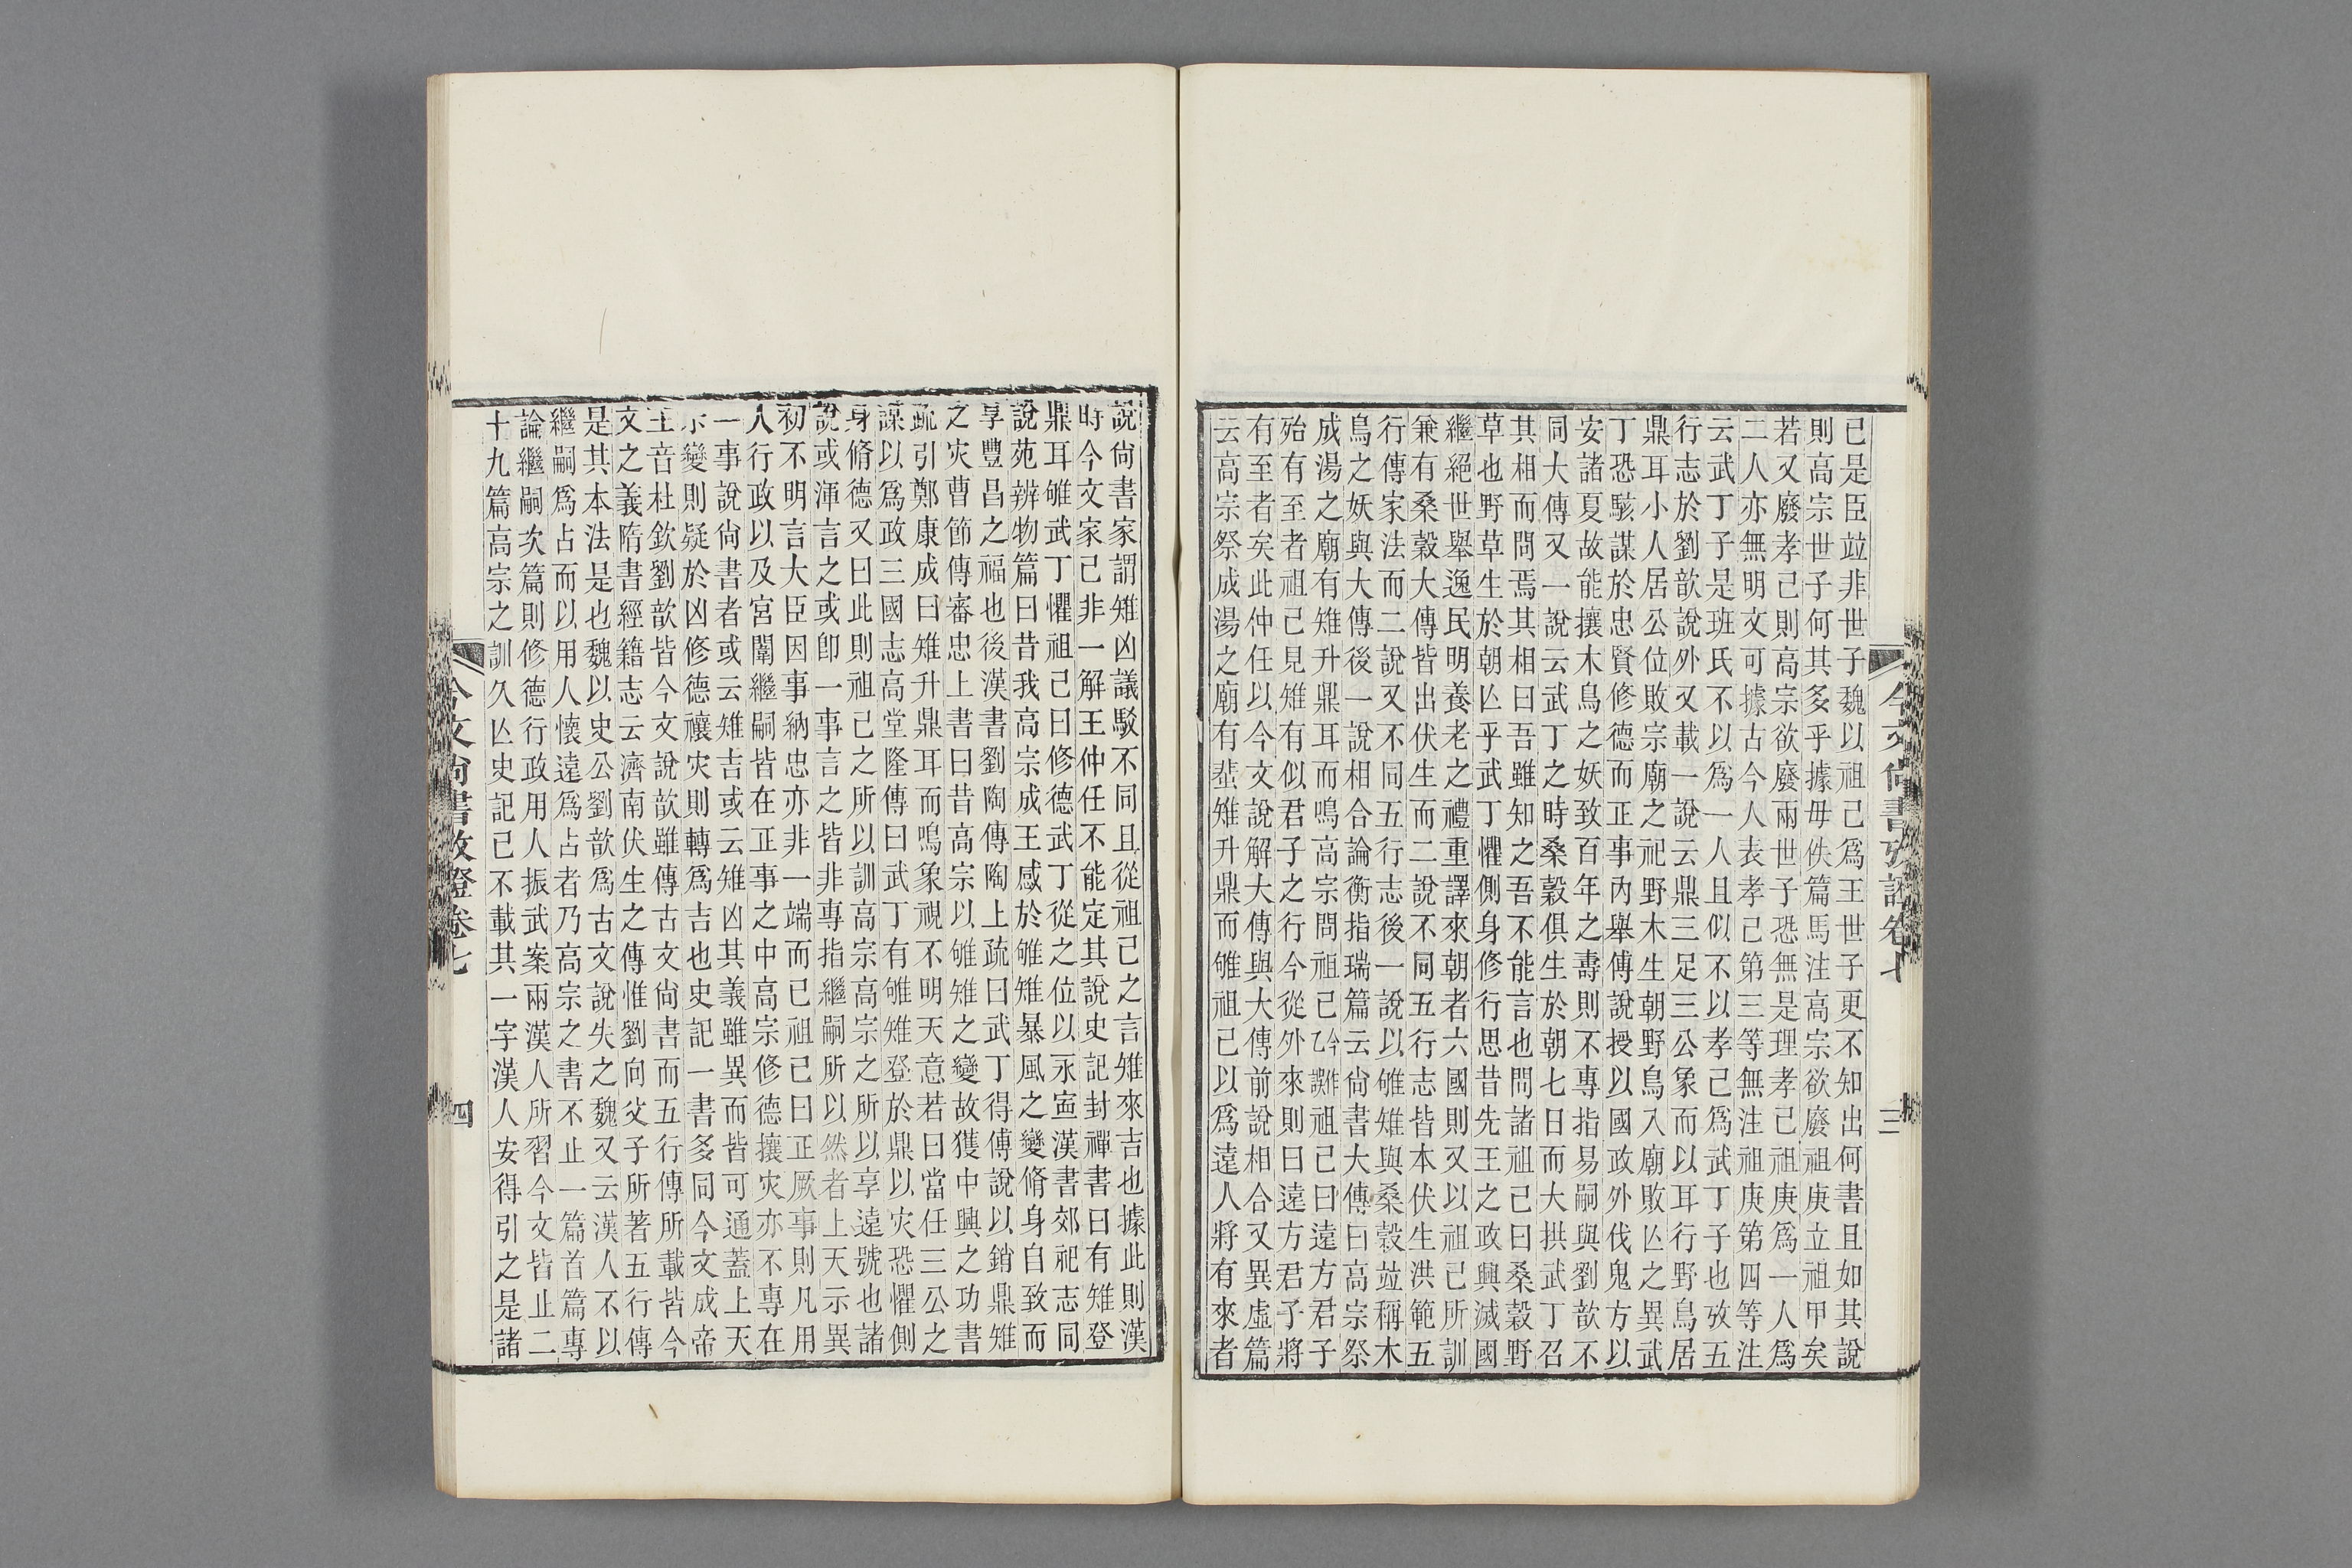 已是臣竝非世子魏以祖己爲王世子更不知出何書且如其說
則高宗世子何其多乎據毋佚篇馬注高宗欲廢祖庚立祖甲矣
若又廢孝己則高宗欲廢兩世子恐無是理孝己祖庚爲一人爲
二人亦無明文可據古今人表孝己第三等無注祖庚第四等注
云武丁子是班氏不以爲一人且似不以孝己爲武丁子也攷五
行志於劉歆說外又載一說云鼎三足三公象而以耳行野鳥居
鼎耳小人居公位敗宗廟之祀野木生朝野鳥入廟敗亾之異武
丁恐駭謀於忠賢修德而正事內舉傅說授以國政外伐鬼方以
安諸夏故能攘木鳥之妖致百年之壽則不專指易嗣與劉歆不
同大傳又一說云武丁之時桑穀俱生於朝七日而大拱武丁召
其相而問焉其相曰吾雖知之吾不能言也問諸祖己曰桑穀野
草也野草生於朝亾乎武丁懼側身修行思昔先王之政興滅國
繼絕世舉逸民明養老之禮重譯來朝者六國則又以祖己所訓
兼有桑穀大傳皆出伏生而二說不同五行志皆本伏生洪範五
行傳家法而二說又不同五行志後一說以雊雉與桑穀竝稱木
鳥之妖與大傳後一說相合論衡指瑞篇云尙書大傳曰高宗祭
成湯之廟有雉升鼎耳而鳴高宗問祖己祖己曰遠方君子
殆有至者祖己見雉有似君子之行今從外來則曰遠方君子將
有至者矣此仲任以今文說解大傳與大傳前說相合又異虛篇
云高宗祭成湯之廟有蜚雉升鼎而雊祖己以爲遠人將有來者
今文尙書攷證卷七
三
說尙書家謂雉凶議駮不同且從祖己之言雉來吉也據此則漢
時今文家已非一解王仲任不能定其說史記封禪書曰有雉登
鼎耳雊武丁懼祖己曰修德武丁從之位以永寍漢書郊祀志同
說苑辨物篇曰昔我高宗成王感於雊雉暴風之變脩身自致而
享豐昌之福也後漢書劉陶傳陶上疏曰武丁得傅說以銷鼎雉
之灾曹節傳審忠上書曰昔高宗以雊雉之變故獲中興之功書
疏引鄭康成曰雉升鼎耳而鳴象視不明天意若曰當任三公之
謀以爲政三國志高堂隆傳曰武丁有雊雉登於鼎以灾恐懼側
身脩德又曰此則祖己之所以訓高宗高宗之所以享遠號也諸
說或渾言之或卽一事言之皆非專指繼嗣所以然者上天示異
初不明言大臣因事納忠亦非一端而已祖己曰正厥事則凡用
人行政以及宮闈繼嗣皆在正事之中高宗修德攘灾亦不專在
一事說尙書者或云雉吉或云雉凶其義雖異而皆可通蓋上天
示變則疑於凶修德禳灾則轉爲吉也史記一書多同今文成帝
王音杜欽劉歆皆今文說歆雖傳古文尙書而五行傳所載皆今
文之義隋書經籍志云濟南伏生之傳惟劉向父子所著五行傳
是其本法是也魏以史公劉歆爲古文說失之魏又云漢人不以
繼嗣爲占而以用人懷遠爲占者乃高宗之書不止一篇首篇專
論繼嗣次篇則修德行政用人振武案兩漢人所習今文皆止二
十九篇高宗之訓久亾史記已不載其一字漢人安得引之是諸
今文尙書攷證卷七
四